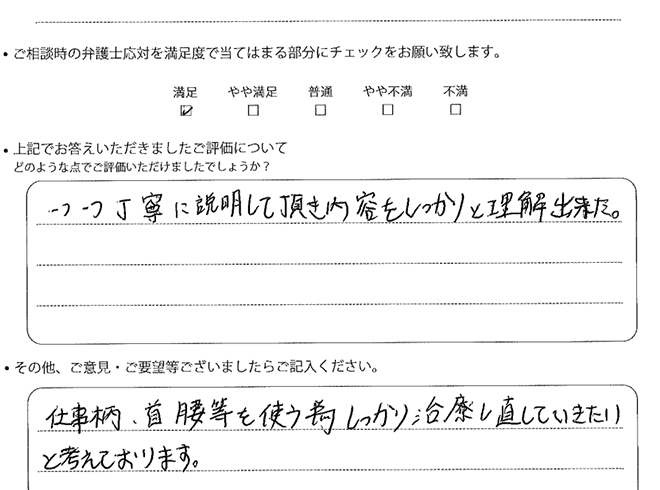 ・ご相談時の弁護士応対を満足度で当てはまる部分にチェックをお願い致します。
満足 やや満足 普通 やや不満 不満
☑ □ □ □ □
・上記でお答えいただきましたご評価について
どのような点でご評価いただけましたでしょうか?
一つ一つ丁寧に説明して頂き内容をしっかりと理解出来た。
・その他、ご意見・ご要望等ございましたらご記入ください。
仕事柄、首腰等を使う為しっかり治療し直していきたい
と考えております。